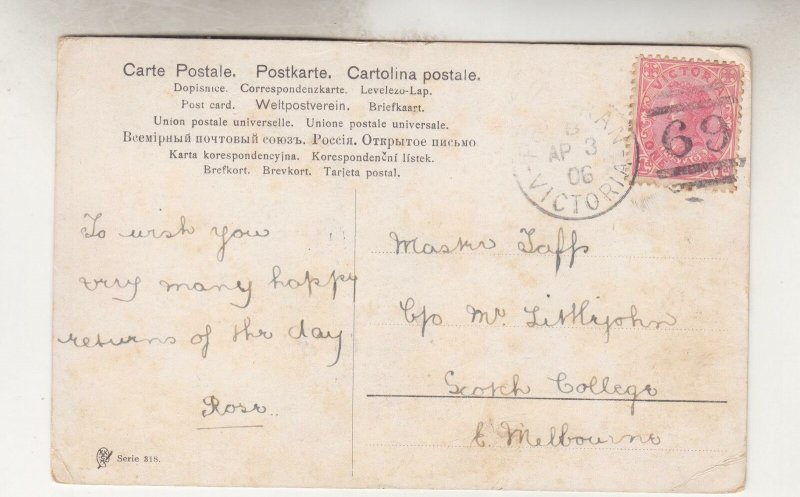 Carte Postale. Postkarte. Cartolina postale.
Dopisnice. Correspondenzkarte. Levelezo-Lap.
Post card. Weltpostverein. Briefkaart.
Union postale universelle. Unione postale universale.
Всемірный почтовый союзъ. Россія. Открытое письмо
Karta korespondencyjna. Korespondenční lístek.
Brefkort. Brevkort. Tarjeta postal.
VICTORIA
ONE PENNY
69
PRAHRAN
B
AP 3
06
VICTORIA
To wish you
very many happy
returns of the day
Rose..
Master Taff
C/o Mr Littlejohn
Scotch College
E. Melbourne
Serie 318.